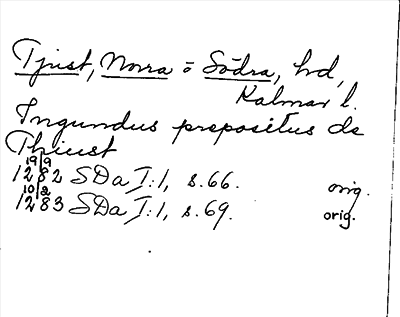 Tjust, Norra o Södra, hd,
Kalmar l.
Ingundus prepositus de
Thiust
19/9
1282 SDa I:1, s. 66. orig.
10/2
1283 SDa I:1, s. 69. orig.